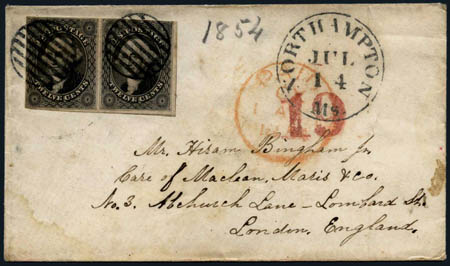 U.S. POSTAGE
TWELVE CENTS
U.S. POSTAGE
TWELVE CENTS
1854
NORTHAMPTON
JUL
14
Ms
19
Mr. Hiram Bingham Jr.
Care of Maclean, Maris & co.
No. 3. Abchurch Lane – Lombard St.
London, England.